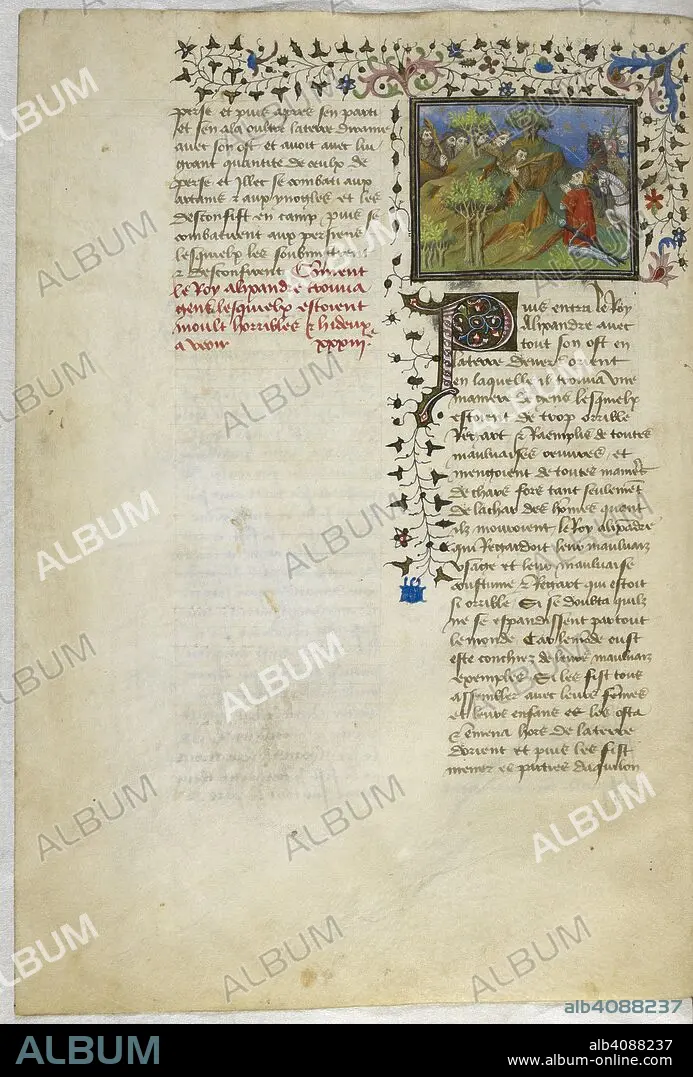 perse et puis apres sen parti
et sen ala oultre laterre diranie
avec son ost et avoit avec luy
grant quantite de ceulx de
perse et illec se combati aux
et les
desconfist en camp, puis se
combatirent aux persiens
lesquelx les soubmirent
et desconfirent Comment
le Roy alixandre trouva
gens lesquelx estoient
moult horribles et hideux
a veoir xxxiii
Puis entra le Roy
Alixandre avec
tout son ost en
laterre devers orient
en laquelle il trouva une
maniere de gens lesquelx
estoient de trop orrible
Regart et Raemplis de toutes
mauluaises oeuvres, et
mengoient de toutes manieres
de chars fors tant seulement
de la char des hommes quant
ilz mouroient le Roy alixandre
qui Regardoit leur mauluaiz
usage et leur mauluaise
coustume et Regart qui estoit
si orrible, Si se doubta quilz
ne se espandissent par tout
le monde Car le monde eust
este conchiez de leurs mauluaiz
exemples, Si les fist tous
assembler avec leurs femmes
et leurs enfans et les osta
et emena hors de la terre
dorient et puis les fist
mener es parties daquilon
ALBUM
alb4088237
ALBUM
alb4088237
www.album-online.com